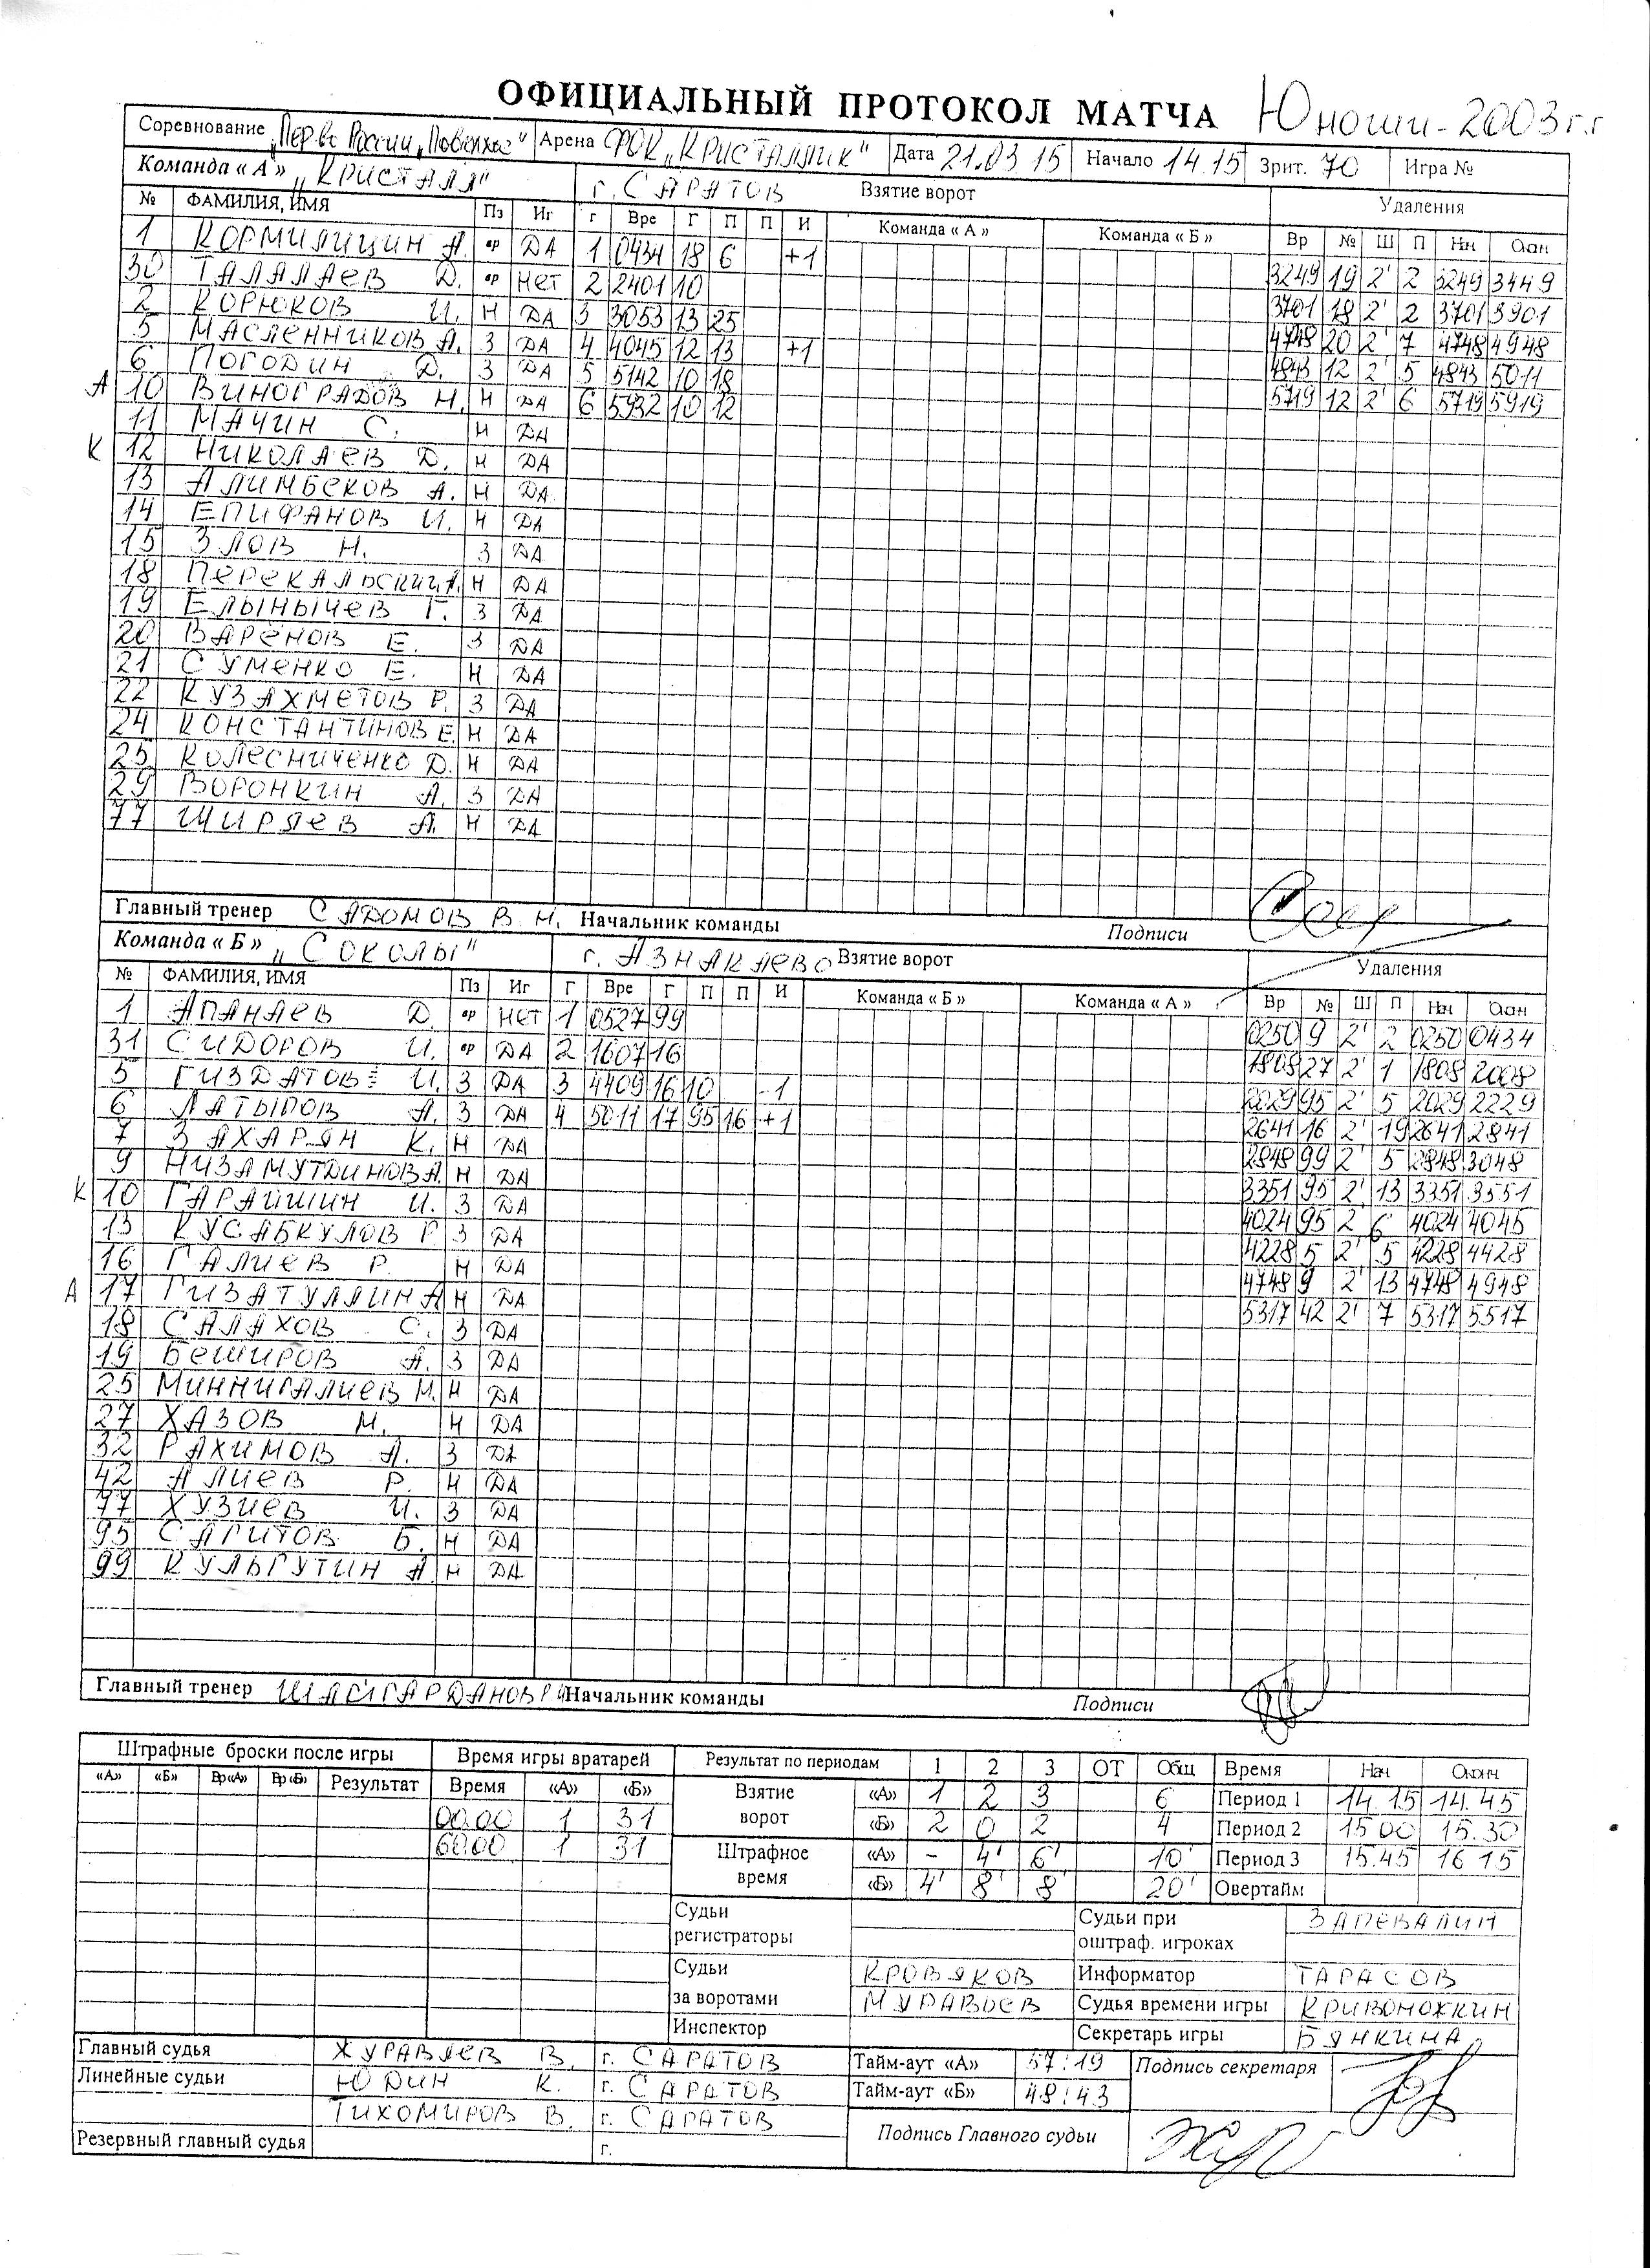 ОФИЦИАЛЬНЫЙ ПРОТОКОЛ МАТЧА Юноши-2003г.г
Соревнование „Перв-во России „Поволжье" Арена ФОК „КРИСТАЛЛИК" Дата 21.03.15 Начало 14.15 Зрит. 70 Игра №
Команда « А » „КРИСТАЛЛ" г. САРАТОВ Взятие ворот Удаления
№ ФАМИЛИЯ, ИМЯ Пз Иг г Вре Г П П И Команда « А » Команда « Б » Вр № Ш П Нач Окон
1 КОРМИЛИЦИН А. вр ДА 1 0434 18 6 +1 3249 19 2' 2 3249 3449
30 ТАЛАЛАЕВ Д. вр НЕТ 2 2401 10 3701 18 2' 2 3701 3901
2 КОРЮКОВ И. Н ДА 3 3053 13 25 4748 20 2' 7 4748 4948
5 МАСЛЕННИКОВ А. З ДА 4 4045 12 13 +1 4843 12 2' 5 4843 5011
6 ПОГОДИН Д. З ДА 5 5142 10 18 5719 12 2' 6 5719 5919
А 10 ВИНОГРАДОВ Н. Н ДА 6 5932 10 12
11 МАЧИН С. Н ДА
К 12 НИКОЛАЕВ Д. Н ДА
13 АЛИМБЕКОВ А. Н ДА
14 ЕПИФАНОВ И. Н ДА
15 ЗЛОВ Н. З ДА
18 ПЕРЕКАЛЬСКИЙ А. Н ДА
19 ЕЛЫНЫЧЕВ Г. З ДА
20 ВАРЁНОВ Е. З ДА
21 СУМЕНКО Е. Н ДА
22 КУЗАХМЕТОВ Р. З ДА
24 КОНСТАНТИНОВ Е. Н ДА
25 КОЛЕСНИЧЕНКО Д. Н ДА
29 ВОРОНКИН А. З ДА
77 ШИРЯЕВ А. Н ДА
Главный тренер САДОМОВ В.Н. Начальник команды Подписи
Команда « Б » „СОКОЛЫ" г. АЗНАКАЕВО Взятие ворот Удаления
№ ФАМИЛИЯ, ИМЯ Пз Иг Г Вре Г П П И Команда « Б » Команда « А » Вр № Ш П Нач Окон
1 АПАНАЕВ Д. вр НЕТ 1 0527 99 0250 9 2' 2 0250 0434
31 СИДОРОВ И. вр ДА 2 1607 16 1808 27 2' 1 1808 2008
5 ГИЗДАТОВ И. З ДА 3 4409 16 10 -1 2029 95 2' 5 2029 2229
6 ЛАТЫПОВ А. З ДА 4 5011 17 95 16 +1 2641 16 2' 19 2641 2841
7 ЗАХАРЯН К. Н ДА 2848 99 2' 5 2848 3048
9 НИЗАМУТДИНОВ А. Н ДА 3351 95 2' 13 3351 3551
К 10 ГАРАЙШИН И. З ДА 4024 95 2 6 4024 4045
13 КУСАБКУЛОВ Р. З ДА 4228 5 2' 5 4228 4428
16 ГАЛИЕВ Р. Н ДА 4748 9 2' 13 4748 4948
А 17 ГИЗАТУЛЛИН А Н ДА 5317 42 2' 7 5317 5517
18 САЛАХОВ С. З ДА
19 БЕШИРОВ А. З ДА
25 МИННИГАЛИЕВ М. Н ДА
27 ХАЗОВ М. Н ДА
32 РАХИМОВ А. З ДА
42 АЛИЕВ Р. Н ДА
77 ХУЗИЕВ И. З ДА
95 САГИТОВ Б. Н ДА
99 КУЛЬГУТИН А. Н ДА
Главный тренер Начальник команды Подписи
Штрафные броски после игры Время игры вратарей Результат по периодам 1 2 3 ОТ Общ Время Нач Оконч
«А» «Б» Вр«А» Вр«Б» Результат Время «А» «Б» Взятие ворот «А» 1 2 3 6 Период 1 14.15 14.45
00.00 1 31 «Б» 2 0 2 4 Период 2 15 00 15.30
60.00 1 31 Штрафное время «А» - 4' 6' 10' Период 3 15.45 16 15
«Б» 4' 8' 8' 20' Овертайм
Судьи регистраторы Судьи при оштраф. игроках ЗАПЕВАЛИН
Судьи КРОВЯКОВ Информатор ТАРАСОВ
за воротами МУРАВЬЕВ Судья времени игры КРИВОНОЖКИН
Инспектор Секретарь игры БЯНКИНА
Главный судья ЖУРАВЛЕВ В. г. САРАТОВ Тайм-аут «А» 57:19 Подпись секретаря
Линейные судьи ЮДИН К. г. САРАТОВ Тайм-аут «Б» 48:43
ТИХОМИРОВ В. г. САРАТОВ Подпись Главного судьи
Резервный главный судья г.